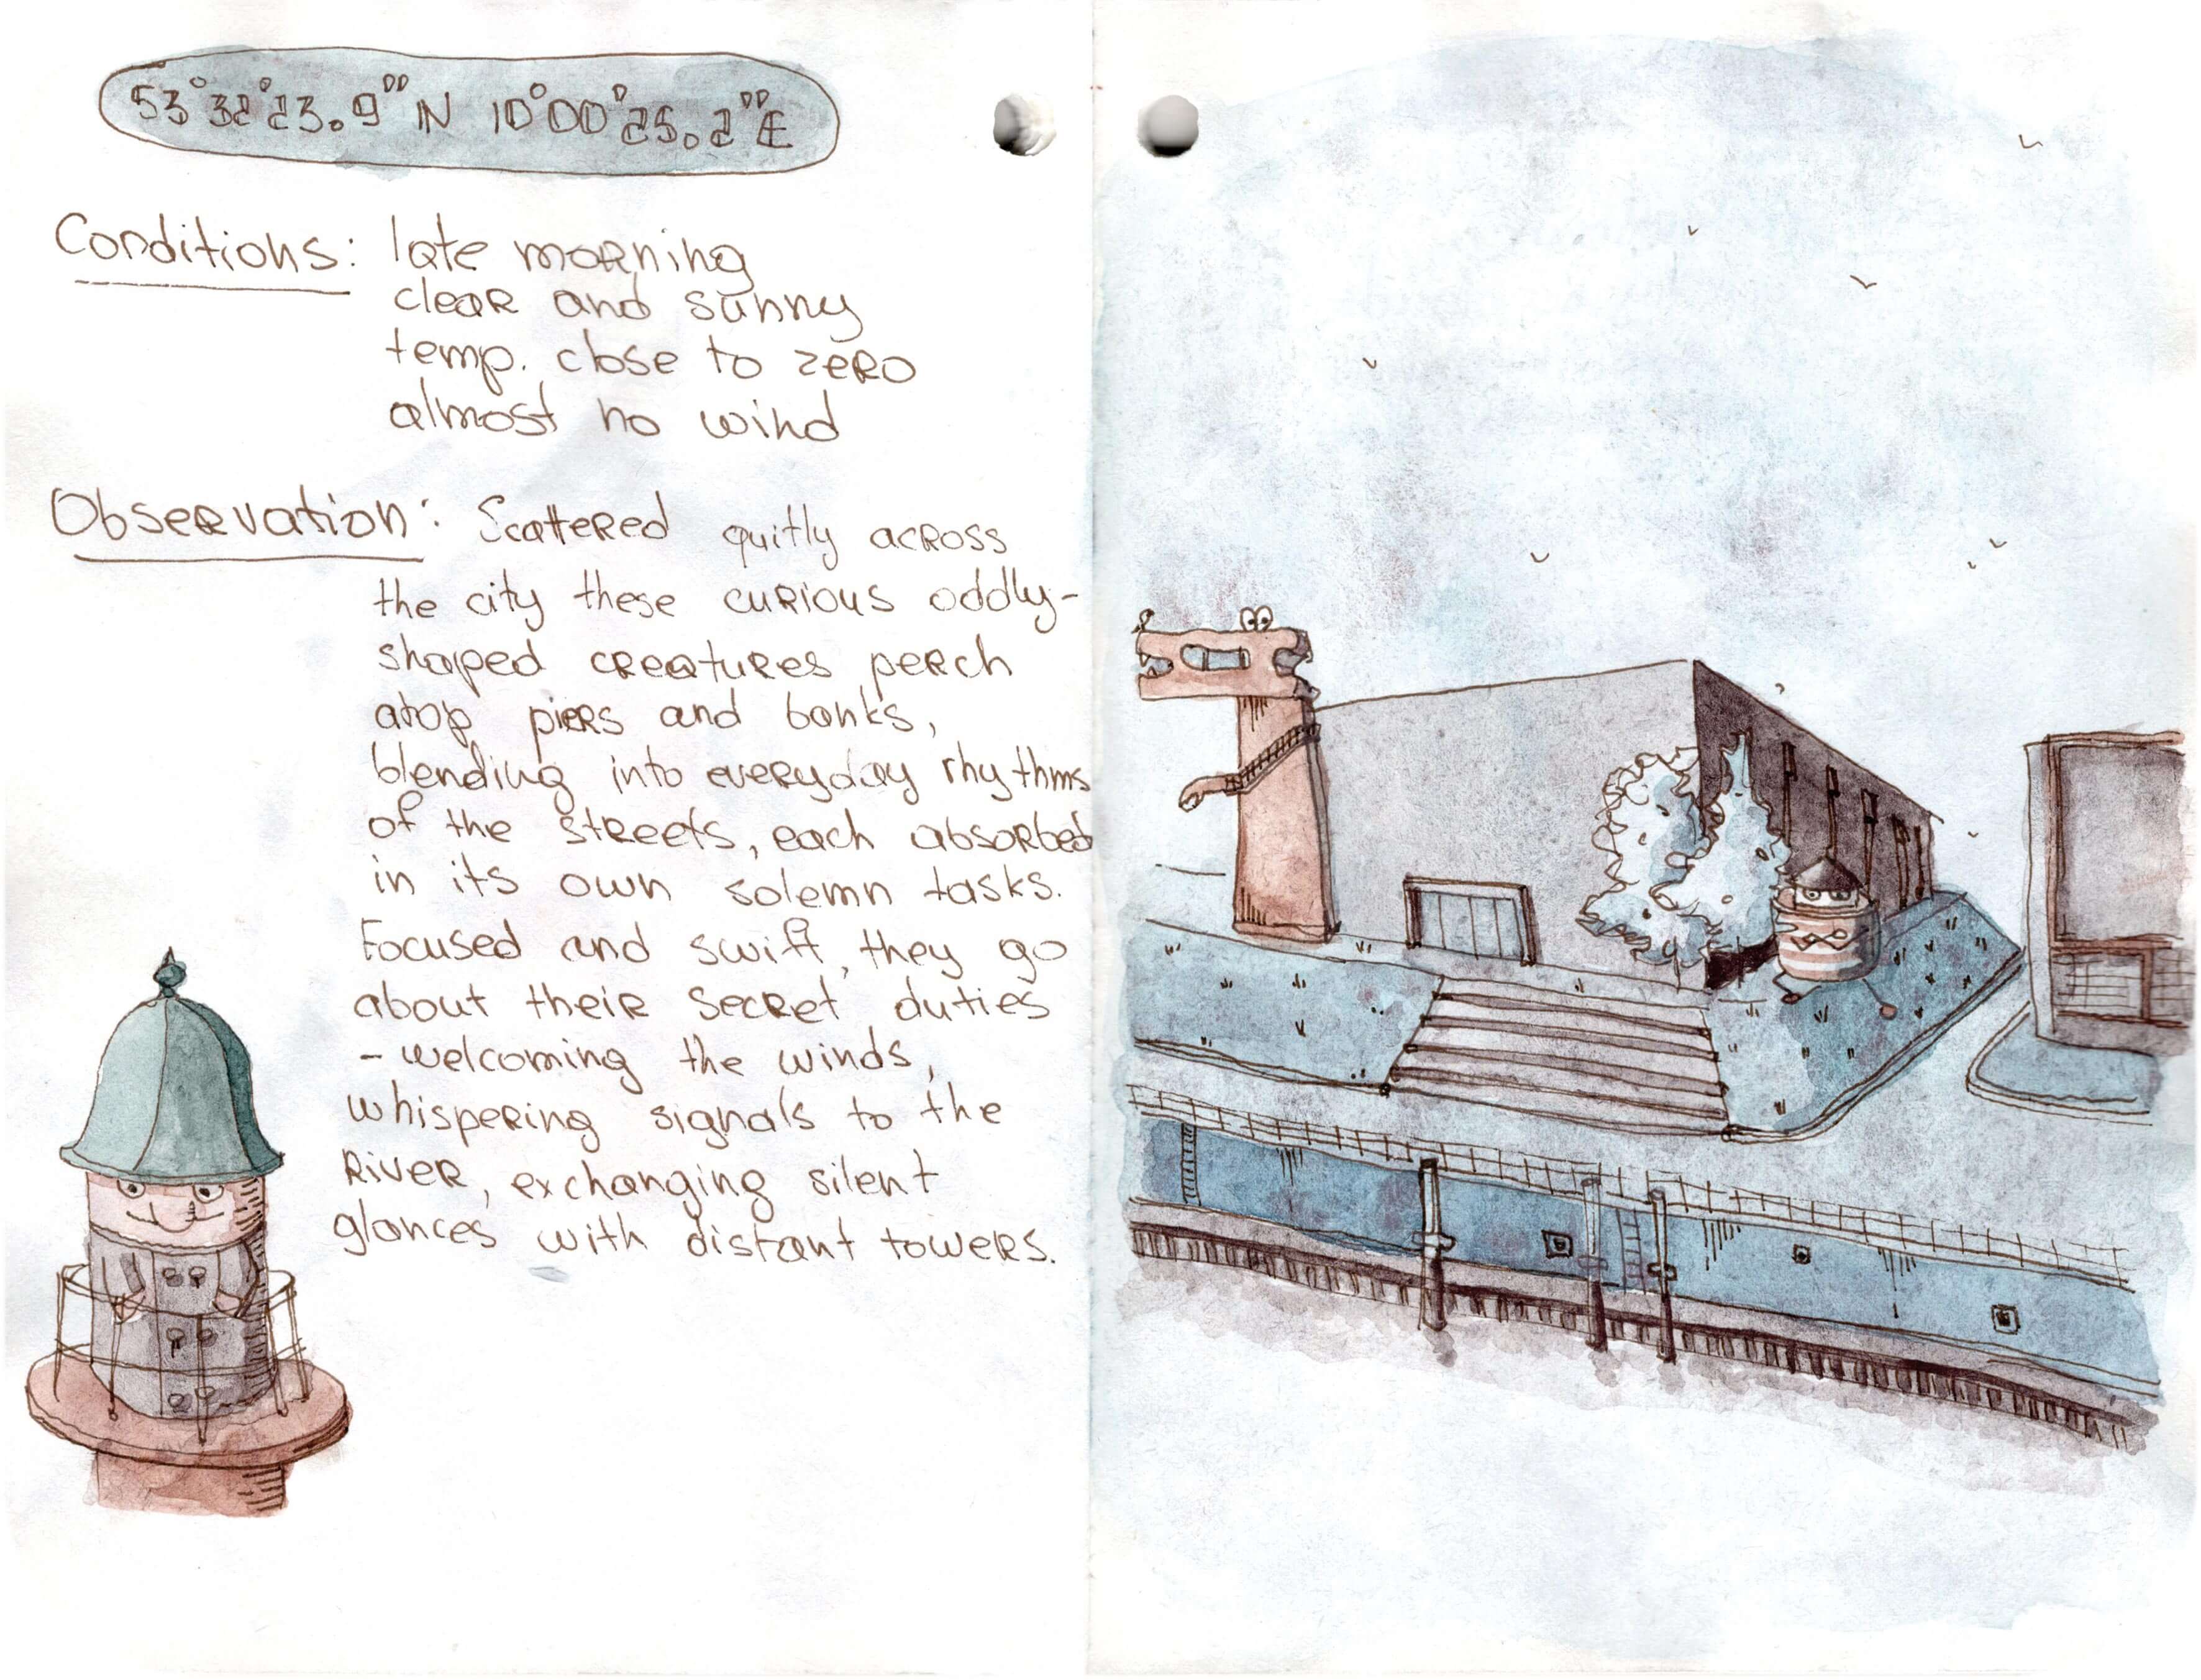 53°32°23.9"N 10°00°25.2"E
Conditions: late morning
clear and sunny
temp. close to zero
almost no wind
Observation: Scattered quitly across
the city these curious oddly-
shaped creatures perch
atop piers and banks,
blending into everyday rhythms
of the streets, each absorbed
in its own solemn tasks.
Focused and swift, they go
about their secret duties
- welcoming the winds,
whispering signals to the
River, exchanging silent
glances with distant towers.